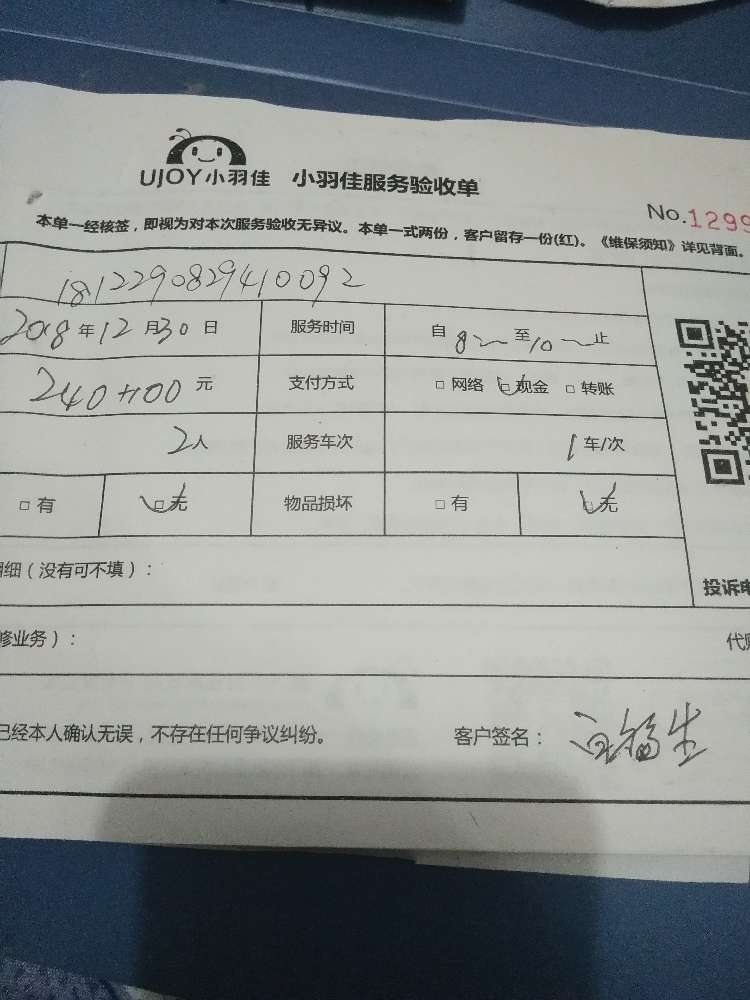 UJOY小羽佳 小羽佳服务验收单
No.1299
本单一经核签，即视为对本次服务验收无异议。本单一式两份，客户留存一份(红)。《维保须知》详见背面。
1812290829410092
2018年12月30日 服务时间 自8~至10~止
240+100元 支付方式 □网络 □现金 □转账
2人 服务车次 1车/次
□有 □无 物品损坏 □有 □无
明细（没有可不填）：
投诉电
修业务）：
代
已经本人确认无误，不存在任何争议纠纷。 客户签名：